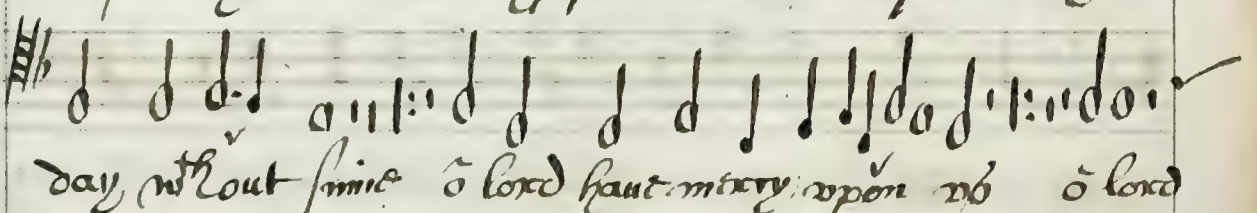 day, wth out sinne ō lord haue mercy vpon vs ō lord